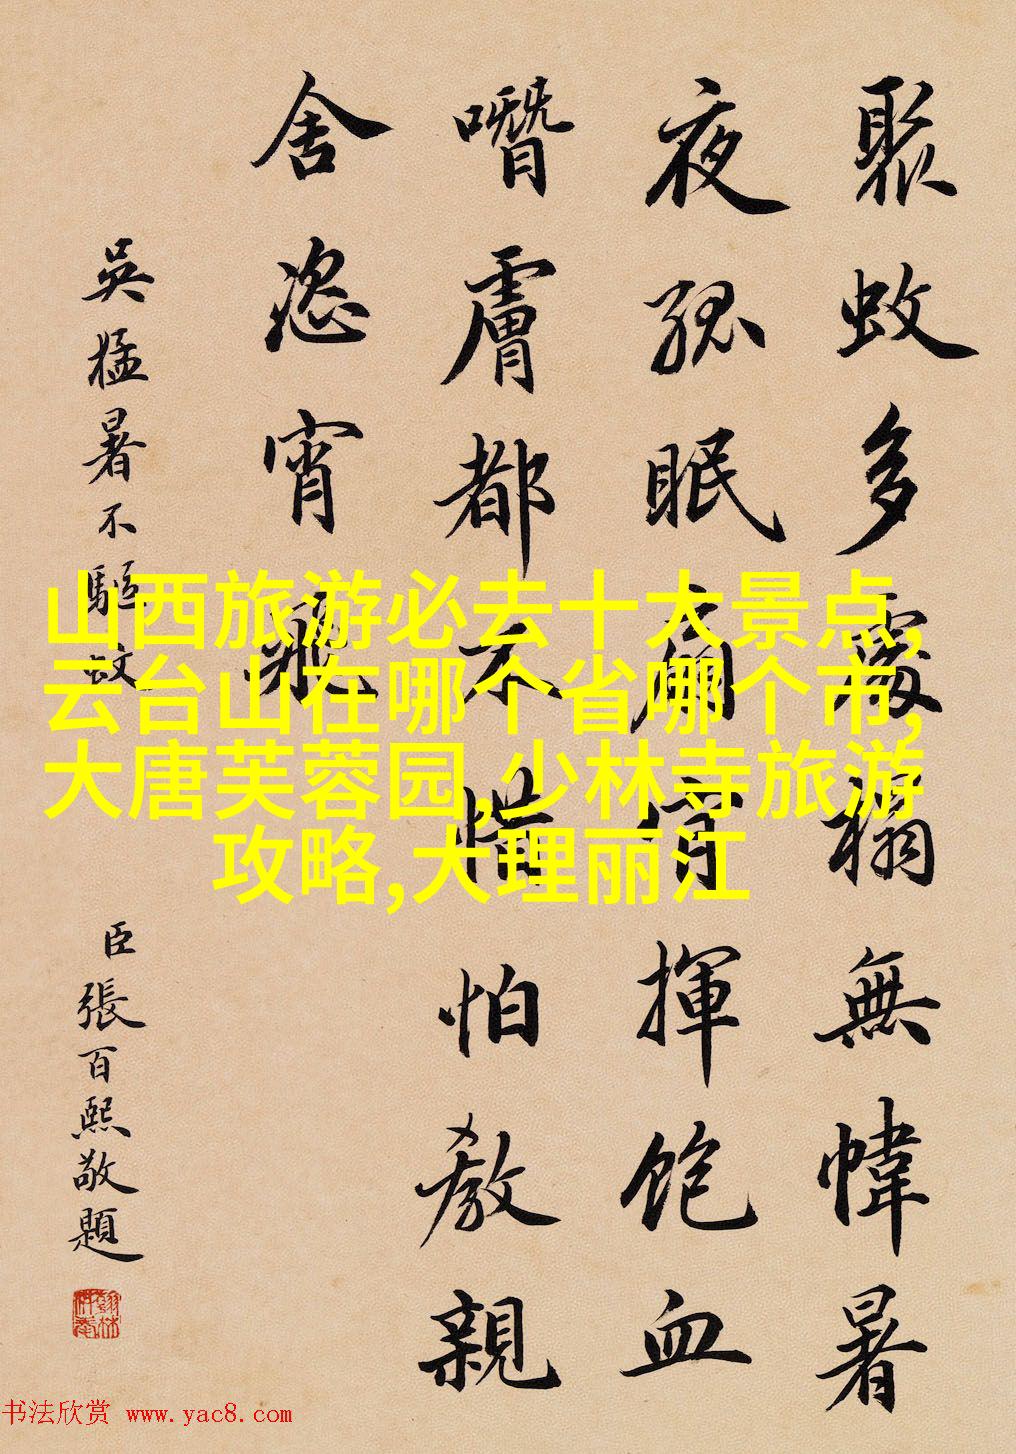 聚蚊多處榻無幃暑
夜孤眠扇肯揮飽血
噆膚都不惜怕教親
舍恣宵飛
吳猛暑不驅蚊
臣張百熙敬題
山西旅游必去十大景点,
云台山在哪个省哪个市,
大唐芙蓉园,少林寺旅游
攻略,大理丽江
书法欣赏 www.yac8.com